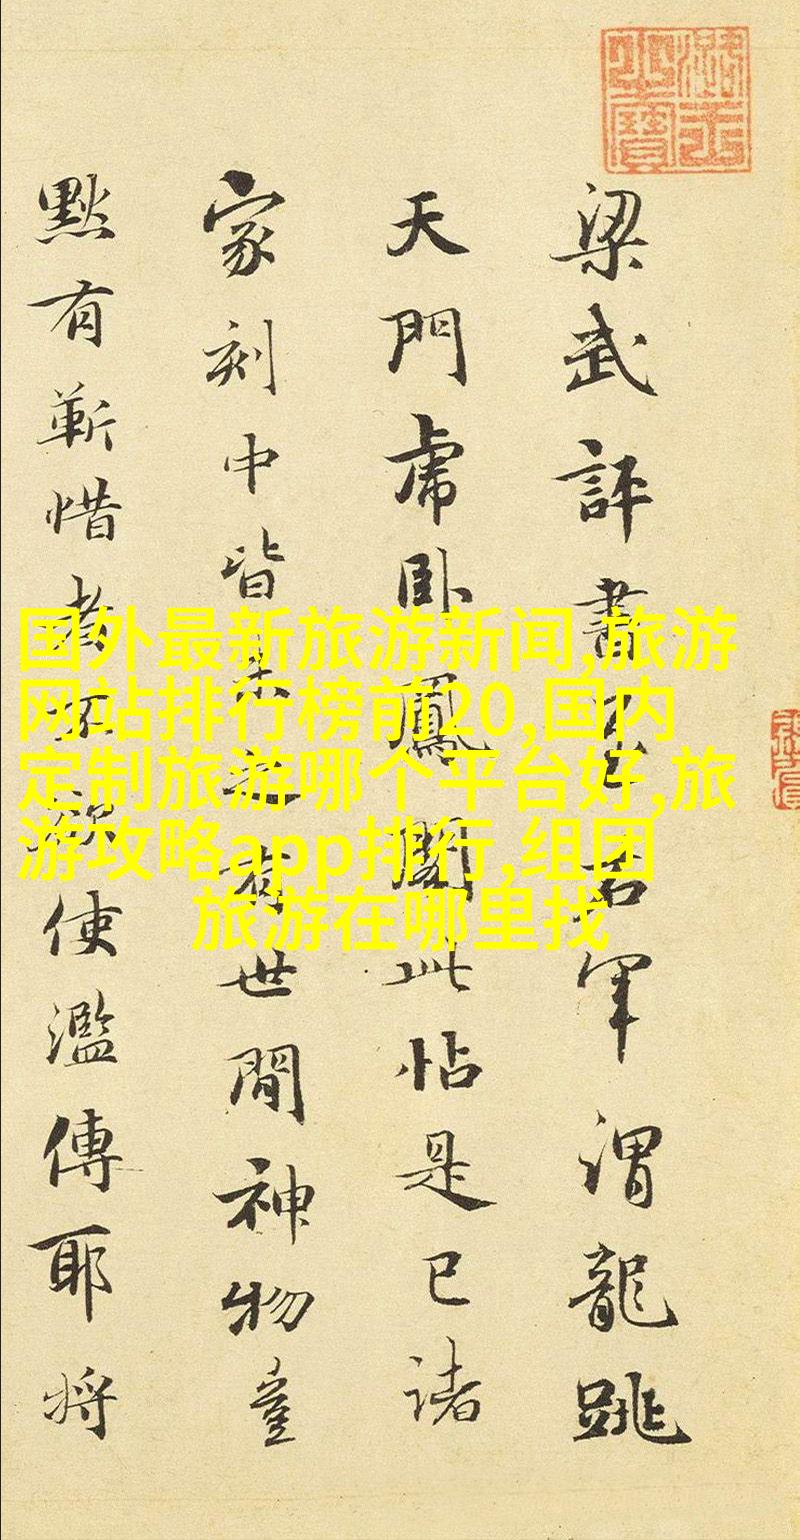 梁武評書右軍謂龍跳
天門虎卧鳳閣此帖是已諸
家刻中皆未有世間神物豈
默有靳惜者不欲使濫傳耶將
国外最新旅游新闻,旅游
网站排行榜前20,国内
定制旅游哪个平台好,旅
游攻略app排行,组团
旅游在哪里找